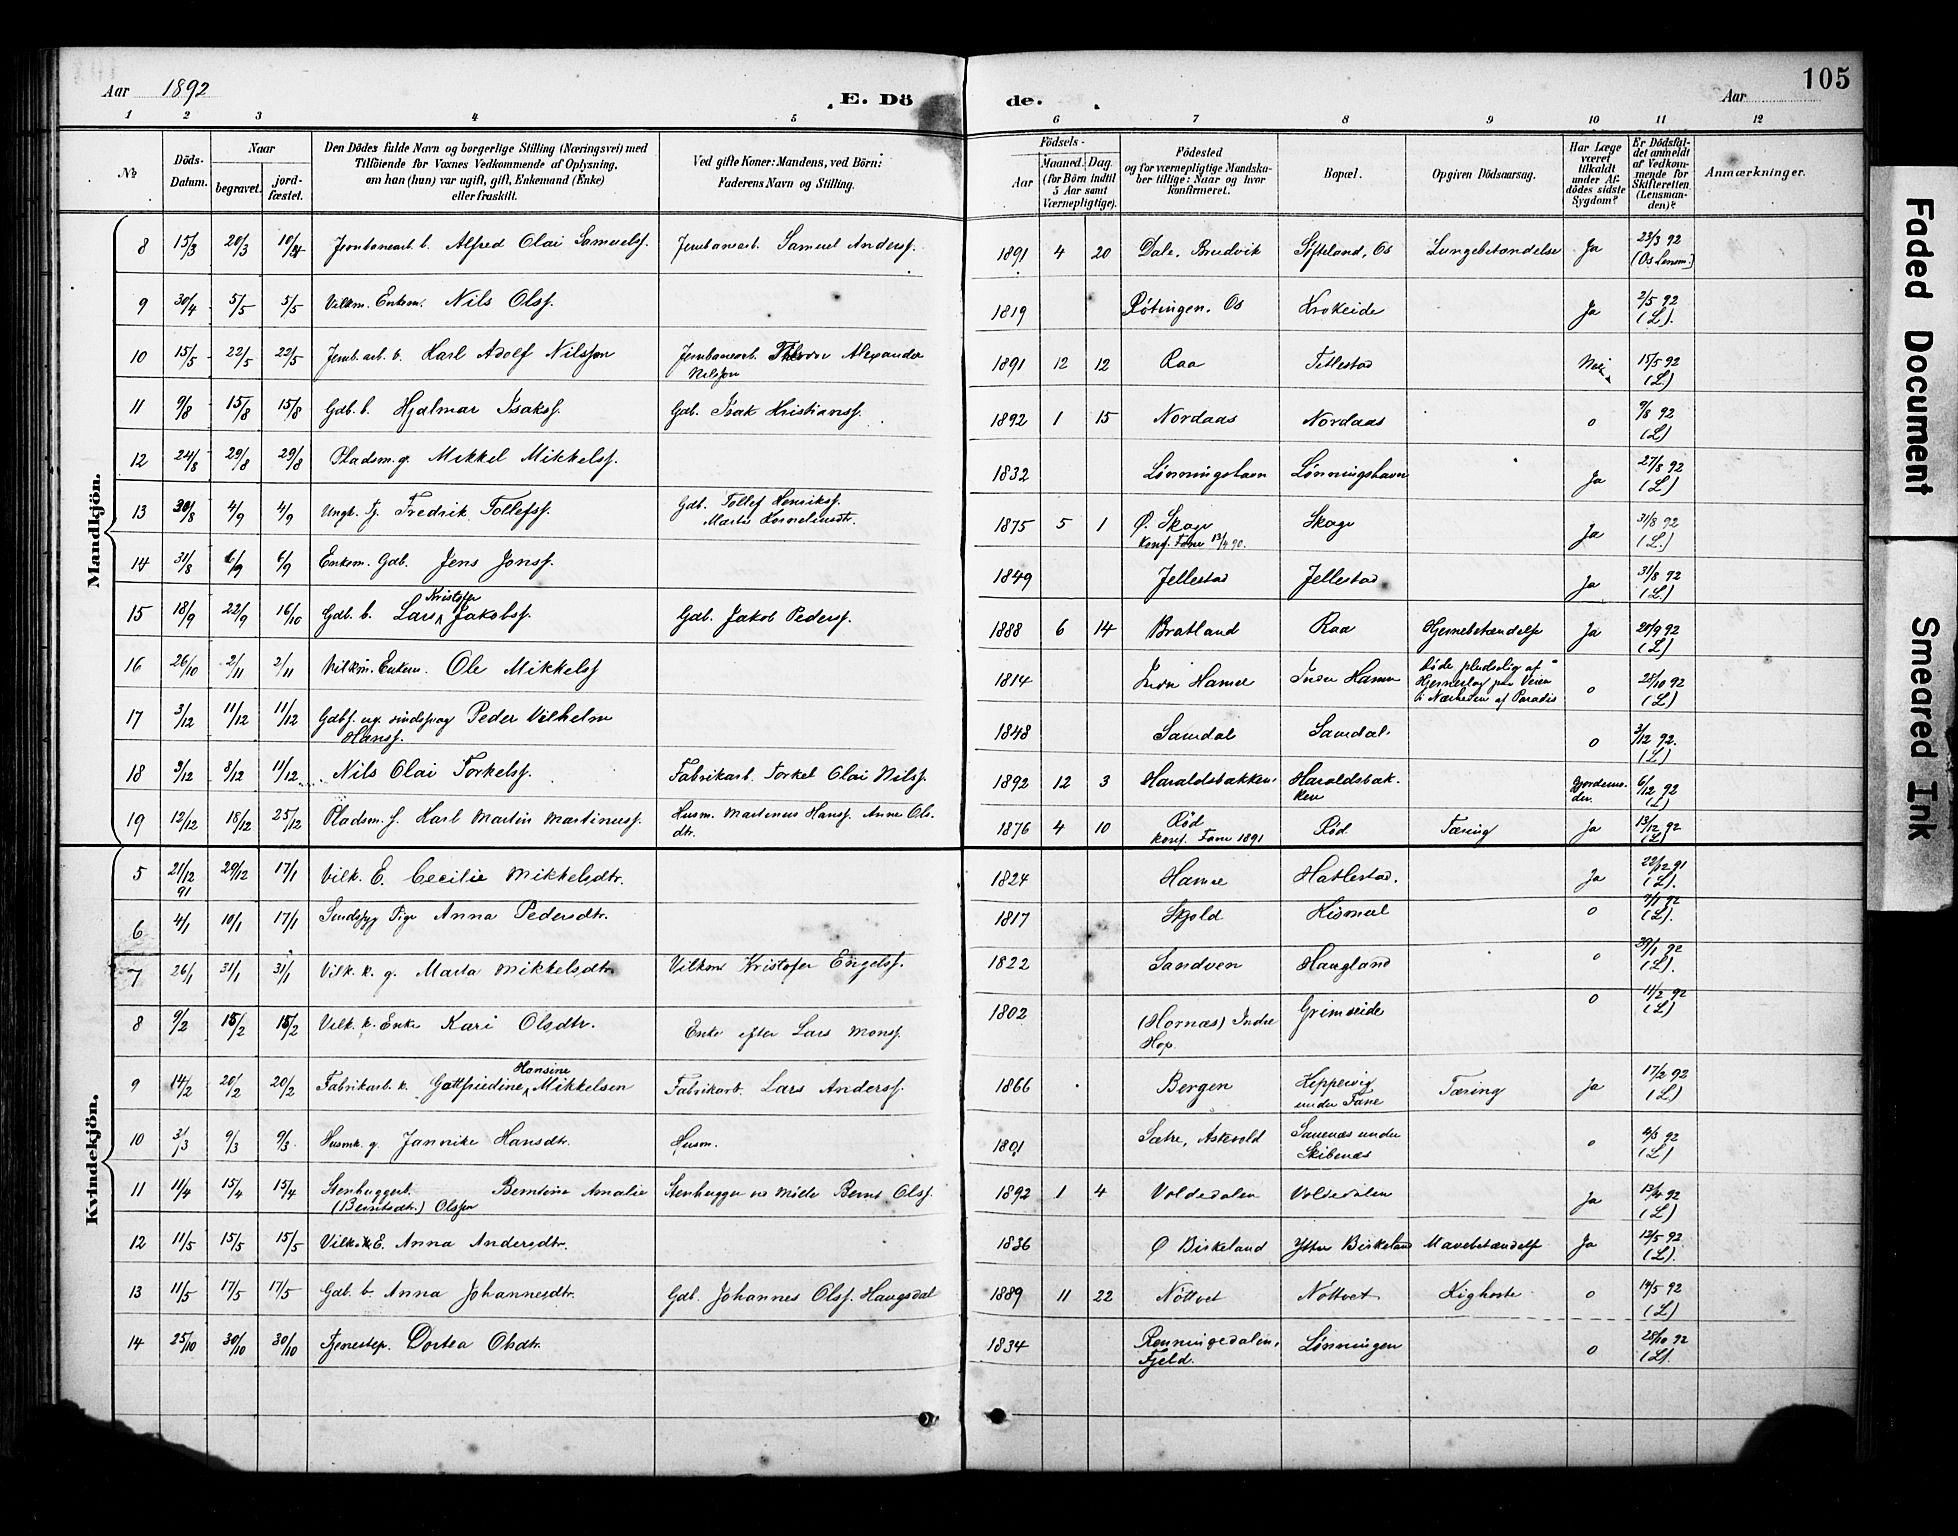 105
Aar 1892
E. Döde.
Aar
1 2 3 4 5 6 7 8 9 10 11 12
№
Döds-Datum.
Naar
begravet.
jord-fæstet.
Den Dödes fulde Navn og borgerlige Stilling (Næringsvei) med
Tilföiende for Voxnes Vedkommende af Oplysning,
om han (hun) var ugift, gift, Enkemand (Enke)
eller fraskilt.
Ved gifte Koner: Mandens, ved Börn:
Faderens Navn og Stilling.
Födsels-
Aar
Maaned. Dag.
(for Börn indtil
5 Aar samt
Værnepligtige).
Födested
og for værnepligtige Mandska-
ber tillige: Naar og hvor
konfirmeret.
Bopæl.
Opgiven Dödsaarsag.
Har Læge
været
tilkaldt
under Af-
dödes sidste
Sygdom?
Er Dödsfal-
det anmeldt
af Vedkom-
mende for
Skifteretten
(Lensman-
den)?
Anmærkninger.
Mandkjön.
8 15/3 20/3 Jernbanearb. b. Alfred Olai Samuelsf. Jernbanearb. Samuel Andersf. 1891 4 20 Dale, Brudvik Syfteland, Os Lungebetændelse Ja 23/3 92
(Os Lensm.)
9 30/4 5/5 5/5 Vilkm. Enkem. Nils Olsf. 1819 Røtingen, Os Krokeide Ja 2/5 92
(L).
10 15/5 22/5 22/5 Jernb. arb. b. Karl Adolf Nilsson Jernbanearb. Alexander
Nilsson 1891 12 12 Raa Titlestad Nei 15/5 92
(L)
11 9/8 15/8 15/8 Gdb. b. Hjalmar Isaksf. Gdb. Isak Kristiansf. 1892 1 15 Nordaas Nordaas o 9/8 92
(L)
12 24/8 29/8 29/8 Pladsm. g. Mikkel Mikkelsf. 1832 Lønningshavn Lønningshavn Ja 27/8 92
(L)
13 30/8 4/9 4/9 Ungk. Fredrik Tollefsf. Gdb. Tollef Henriksf.
Marta Korneliusdtr. 1875 5 1 Ø. Skage
Konf. Fane 13/4 90. Skage Ja 31/8 92
(L.)
14 31/8 6/9 6/9 Enkem. Gdb. Jens Jonsf. 1849 Jellestad Jellestad Ja 31/8 92
(L.)
15 18/9 22/9 16/10 Gdb. b. Lars Kristofer Jakobsf. Gdb. Jakob Pedersf. 1888 6 14 Bratland Raa Hjernebetændelse Ja 20/9 92
(L)
16 26/10 2/11 2/11 Vilkm. Enkem. Ole Mikkelsf 1814 Indre Hamre Indre Hamre Døde pludselig af
Hjerneslag paa Veien
i Nærheden af Paradis o 28/10 92
(L)
17 3/12 11/12 11/12 Gdbs. ug. sindssvag Peder Vilhelm
Hansf. 1848 Samdal Samdal. o 3/12 92.
(L)
18 3/12 8/12 11/12 Nils Olai Torkelsf. Fabrikarb. Torkel Olai Nilsf. 1892 12 3 Haraldsbakken. Haraldsbak-
ken Jordemo-
der. 6/12 92
(L)
19 12/12 18/12 25/12 Pladsm. f. Karl Martin Martinusf. Husm. Martinus Hansf. Anne Ols-
dtr. 1876 4 10 Rød
Konf. Fane 1891 Rød Tæring Ja 13/12 92
(L)
Kvindekjön.
5 21/12 91 29/12 17/1 Vilk. E. Cecilie Mikkelsdtr. 1824 Hamre Hatlestad. Ja 22/12 91
(L).
6 4/1 10/1 17/1 Sindssyg Pige Anna Pedersdtr. 1817 Skjold o 7/1 92
(L).
7 26/1 31/1 31/1 Vilk. k. g. Marta Mikkelsdtr. Vilkm Kristofer Engelsf. 1822 Sandven Haugland o 30/1 92
(L).
8 9/2 15/2 15/2 Vilk. k. Enke Kari Olsdtr. Enke efter Lars Monsf. 1802 (Hornæs) Indre
Hop. Grimseide o 11/2 92
(L)
9 14/2 20/2 20/2 Fabrikarb. k. Gottfriedine Hansine Mikkelsen Fabrikarb. Lars Andersf. 1866 Bergen Keppevig
under Fane Tæring Ja 17/2 92
(L)
10 3/3 9/3 9/3 Husmk. g. Jannike Hansdtr. Husm. 1801 Sætre, Astevold Sauenæs under
Skibenæs o 4/3 92
(L)
11 11/4 15/4 15/4 Stenhuggerb. Berntine Amalie
(Berntsdtr.) Olsson Stenhugger Bernt Olsf. 1892 1 4 Voldedalen Voldedalen Ja 13/4 92
(L)
12 11/5 15/5 15/5 Vilk. k. E. Anna Andersdtr. 1836 Ø Birkeland Ytre Birkeland Mavebetændelse Ja 12/5 92
(L).
13 11/5 17/5 17/5 Gdb. b. Anna Johannesdtr. Gdb. Johannes Olsf. Haugsdal 1889 11 22 Nöttvet Nöttvet Kighoste o 14/5 92
(L)
14 25/10 30/10 30/10 Tjenestep. Dortea Olsdtr. 1834 Rønningedalen,
Fjeld. Lønningen o 28/10 92
(L).
Faded Document
Smeared Ink